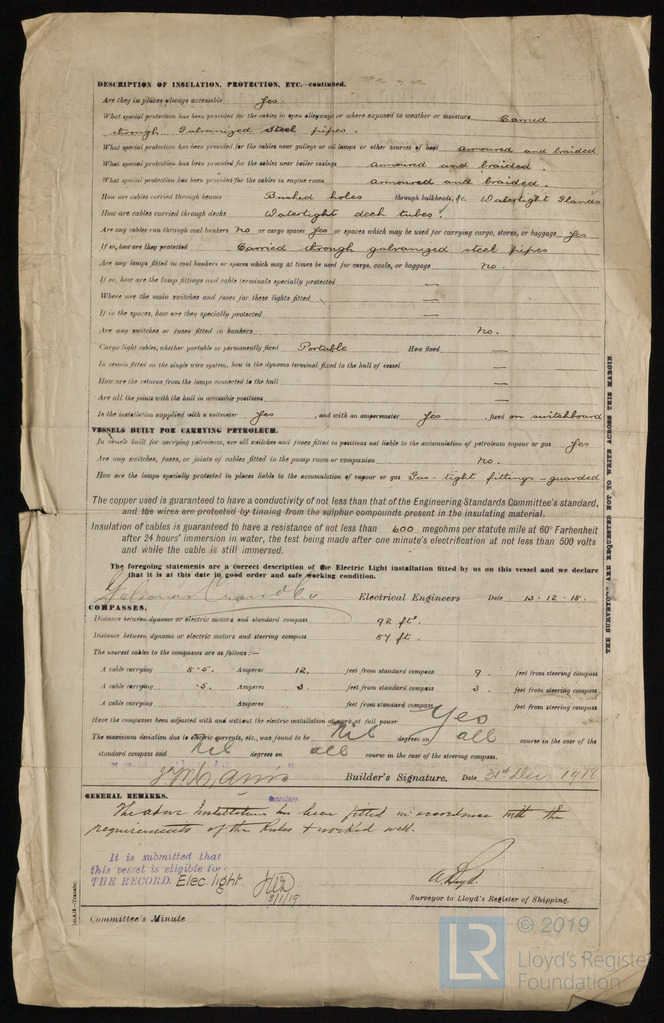 DESCRIPTION OF INSULATION, PROTECTION, ETC.—continued.
Are they in places always accessible Yes
What special protection has been provided for the cables in open alleyways or where exposed to weather or moisture Carried
through Galvanized steel pipes.
What special protection has been provided for the cables near galleys or oil lamps or other sources of heat armoured and braided
What special protection has been provided for the cables near boiler casings armoured and braided.
What special protection has been provided for the cables in engine room armoured and braided.
How are cables carried through beams Bushed holes through bulkheads, &c. Watertight Glands
How are cables carried through decks Watertight deck tubes.
Are any cables run through coal bunkers no or cargo spaces Yes or spaces which may be used for carrying cargo, stores, or baggage Yes
If so, how are they protected Carried through galvanized steel pipes
Are any lamps fitted in coal bunkers or spaces which may at times be used for cargo, coals, or baggage no.
If so, how are the lamp fittings and cable terminals specially protected —
Where are the main switches and fuses for these lights fitted —
If in the spaces, how are they specially protected —
Are any switches or fuses fitted in bunkers no.
Cargo light cables, whether portable or permanently fixed Portable How fixed —
In vessels fitted on the single wire system, how is the dynamo terminal fixed to the hull of vessel —
How are the returns from the lamps connected to the hull —
Are all the joints with the hull in accessible positions —
Is the installation supplied with a voltmeter Yes , and with an amperemeter Yes , fixed on switchboard
VESSELS BUILT FOR CARRYING PETROLEUM.
In vessels built for carrying petroleum, are all switches and fuses fitted in positions not liable to the accumulation of petroleum vapour or gas Yes
Are any switches, fuses, or joints of cables fitted in the pump room or companion no.
How are the lamps specially protected in places liable to the accumulation of vapour or gas Gas-tight fittings - guarded
The copper used is guaranteed to have a conductivity of not less than that of the Engineering Standards Committee's standard,
and the wires are protected by tinning from the sulphur compounds present in the insulating material.
Insulation of cables is guaranteed to have a resistance of not less than 600 megohms per statute mile at 60° Farhenheit
after 24 hours' immersion in water, the test being made after one minute's electrification at not less than 500 volts
and while the cable is still immersed.
The foregoing statements are a correct description of the Electric Light installation fitted by us on this vessel and we declare
that it is at this date in good order and safe working condition.
Electrical Engineers Date 13-12-18.
COMPASSES.
Distance between dynamo or electric motors and standard compass 92 fts.
Distance between dynamo or electric motors and steering compass 87 ft.
The nearest cables to the compasses are as follows:—
A cable carrying 8.5. Amperes 12. feet from standard compass 9 feet from steering compass
A cable carrying .5 Amperes 3 feet from standard compass 3 feet from steering compass
A cable carrying Amperes feet from standard compass feet from steering compass
Have the compasses been adjusted with and without the electric installation at work at full power Yes
The maximum deviation due to electric currents, etc., was found to be Nil degrees on all course in the case of the
standard compass and Nil degrees on all course in the case of the steering compass.
Builder's Signature. Date 31st Dec 1918
GENERAL REMARKS.
The above Installation has been fitted in accordance with the
requirements of the Rules & worked well.
It is submitted that
this vessel is eligible for
THE RECORD. Elec. light.
8/1/19
Surveyor to Lloyd's Register of Shipping.
Committee's Minute
THE SURVEYORS ARE REQUESTED NOT TO WRITE ACROSS THIS MARGIN.
LR
© 2019
Lloyd's Register
Foundation